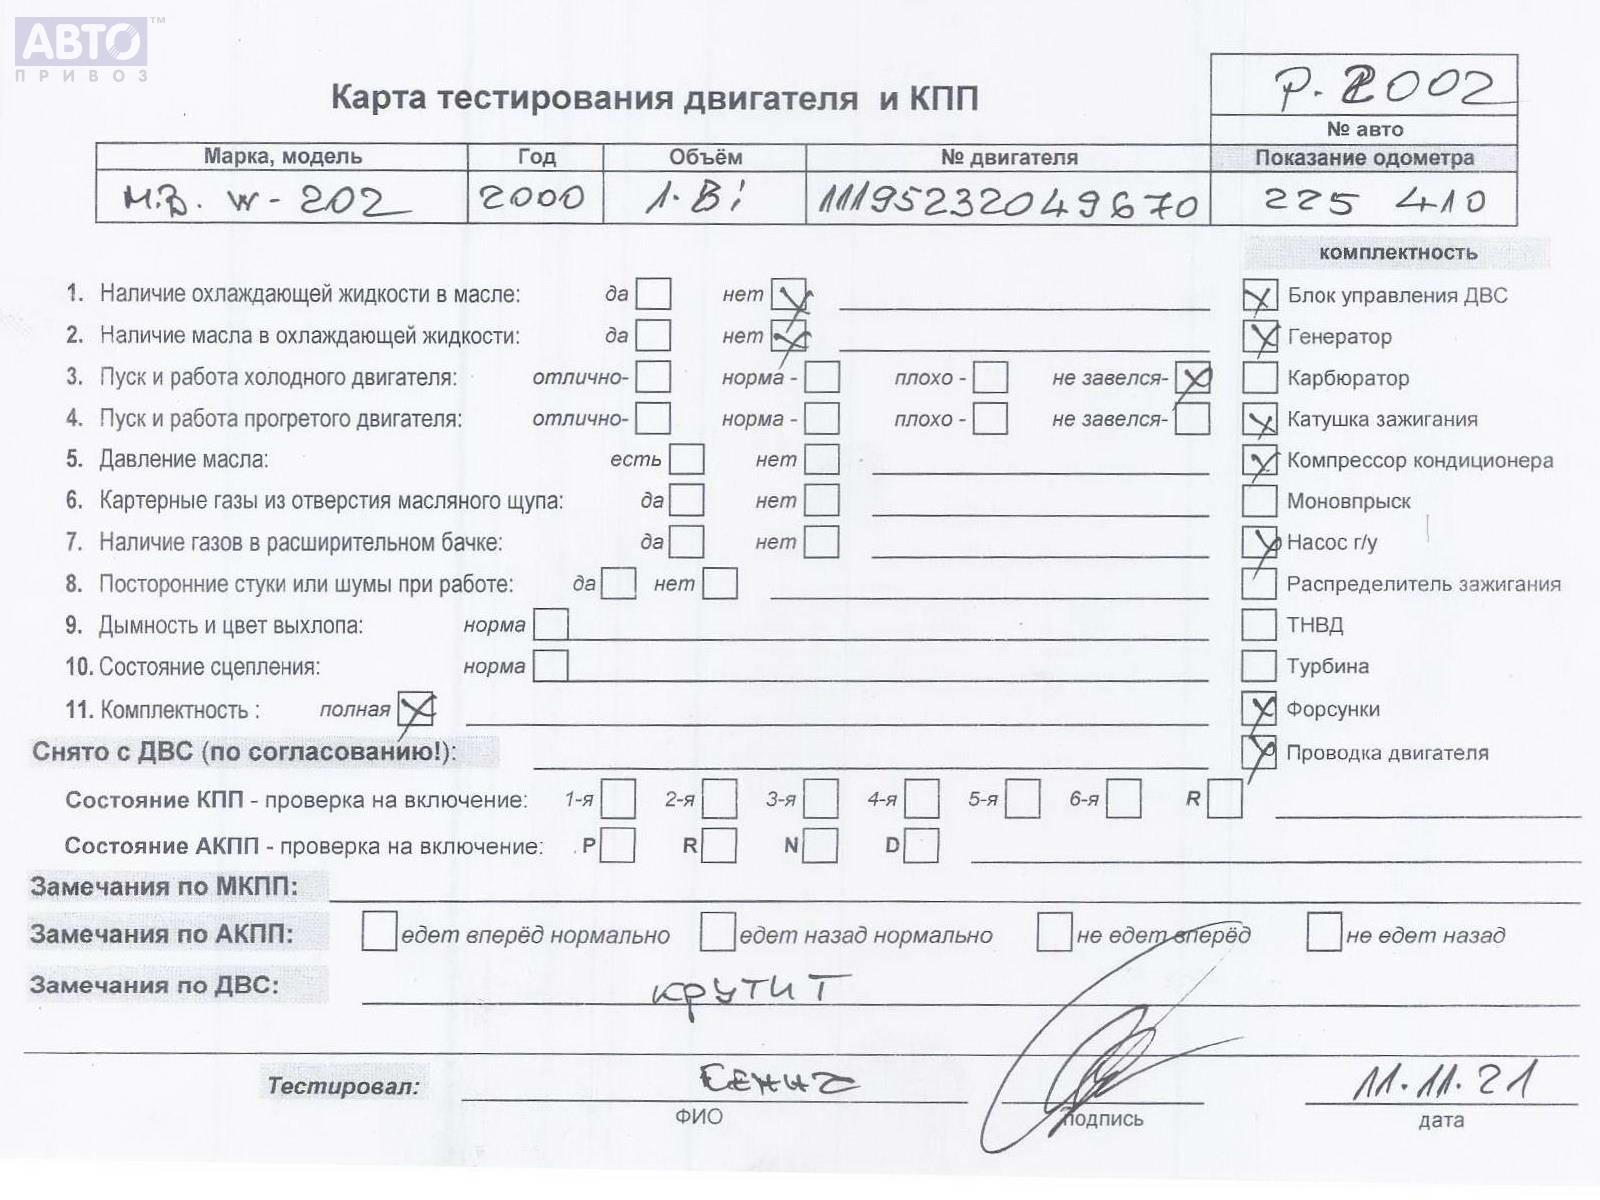 АВТО™
ПРИВОЗ
Карта тестирования двигателя и КПП
Р. 2002
№ авто
Марка, модель Год Объём № двигателя Показание одометра
М.В. W-202 2000 1.8i 11195232049670 225 410
комплектность
1. Наличие охлаждающей жидкости в масле: да нет Блок управления ДВС
2. Наличие масла в охлаждающей жидкости: да нет Генератор
3. Пуск и работа холодного двигателя: отлично- норма - плохо - не завелся- Карбюратор
4. Пуск и работа прогретого двигателя: отлично- норма - плохо - не завелся- Катушка зажигания
5. Давление масла: есть нет Компрессор кондиционера
6. Картерные газы из отверстия масляного щупа: да нет Моновпрыск
7. Наличие газов в расширительном бачке: да нет Насос г/у
8. Посторонние стуки или шумы при работе: да нет Распределитель зажигания
9. Дымность и цвет выхлопа: норма ТНВД
10. Состояние сцепления: норма Турбина
11. Комплектность : полная Форсунки
Снято с ДВС (по согласованию!): Проводка двигателя
Состояние КПП - проверка на включение: 1-я 2-я 3-я 4-я 5-я 6-я R
Состояние АКПП - проверка на включение: P R N D
Замечания по МКПП:
Замечания по АКПП: едет вперёд нормально едет назад нормально не едет вперёд не едет назад
Замечания по ДВС: крутит
Тестировал: 11.11.21
ФИО подпись дата